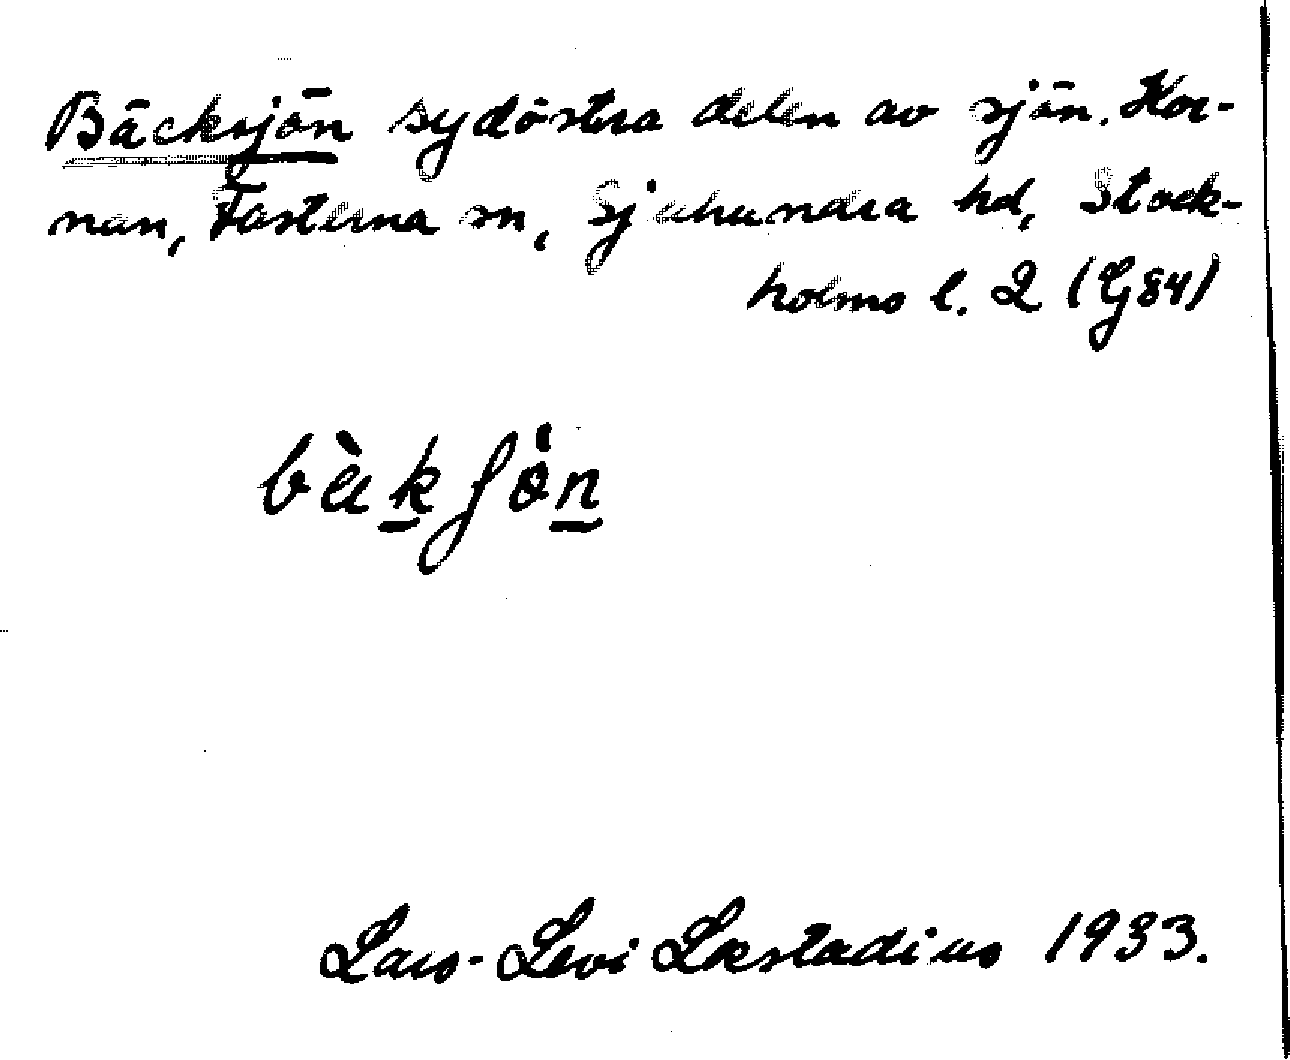 Bäcksjön sydöstra delen av sjön. Kor-
nan, Fasterna sn, Sjuhundra hd, Stock-
holms l. 2 (G84)
bàkʃön
Lars-Levi Læstadius 1933.